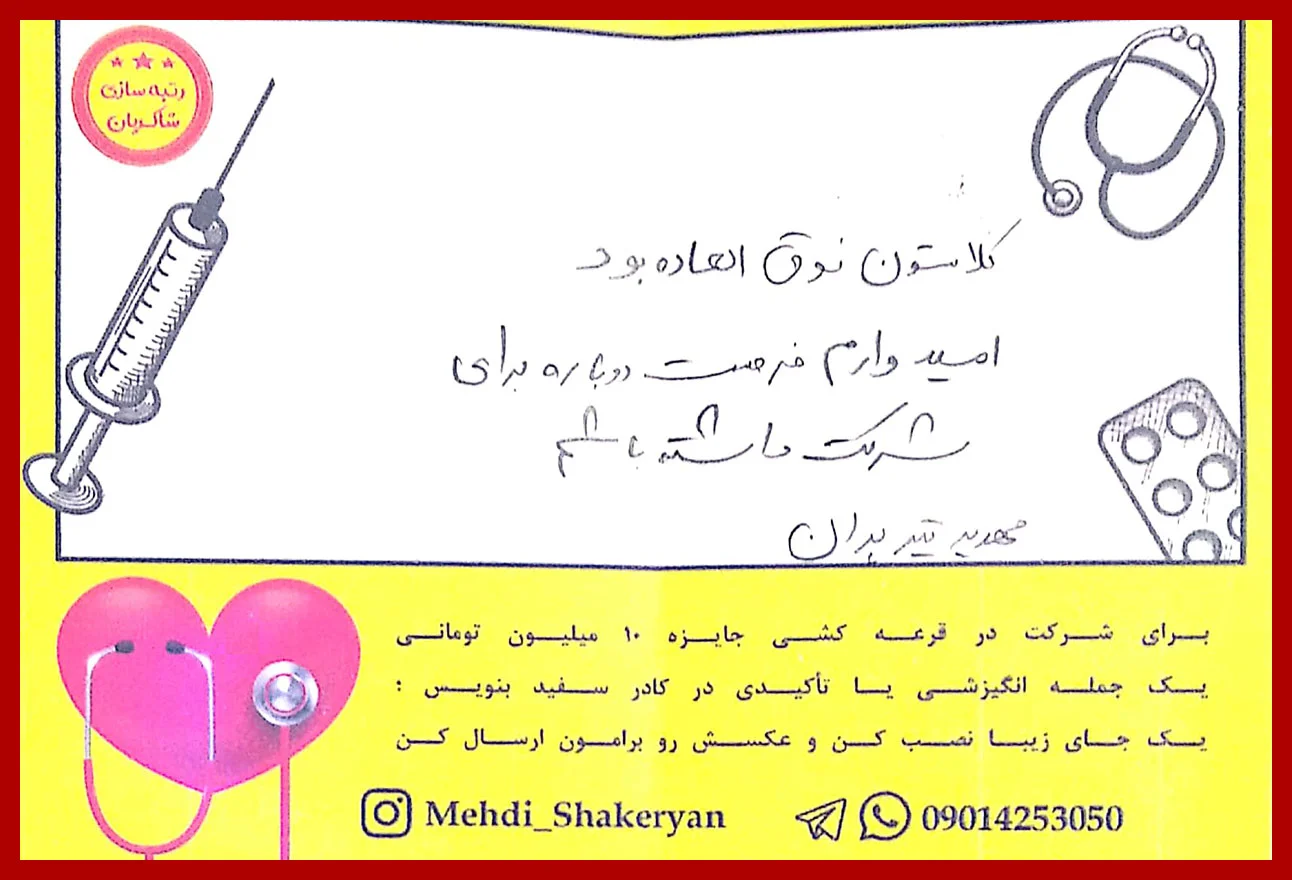 رتبه سازی
شاکریان
کلاستون فوق العاده بود
امیدوارم فرصت دوباره برای
شرکت داشته باشم
مهدیه تیر بدان
برای شرکت در قرعه کشی جایزه ۱۰ میلیون تومانی
یک جمله انگیزشی یا تأکیدی در کادر سفید بنویس :
یک جای زیبا نصب کن و عکسش رو برامون ارسال کن
Mehdi_Shakeryan
09014253050